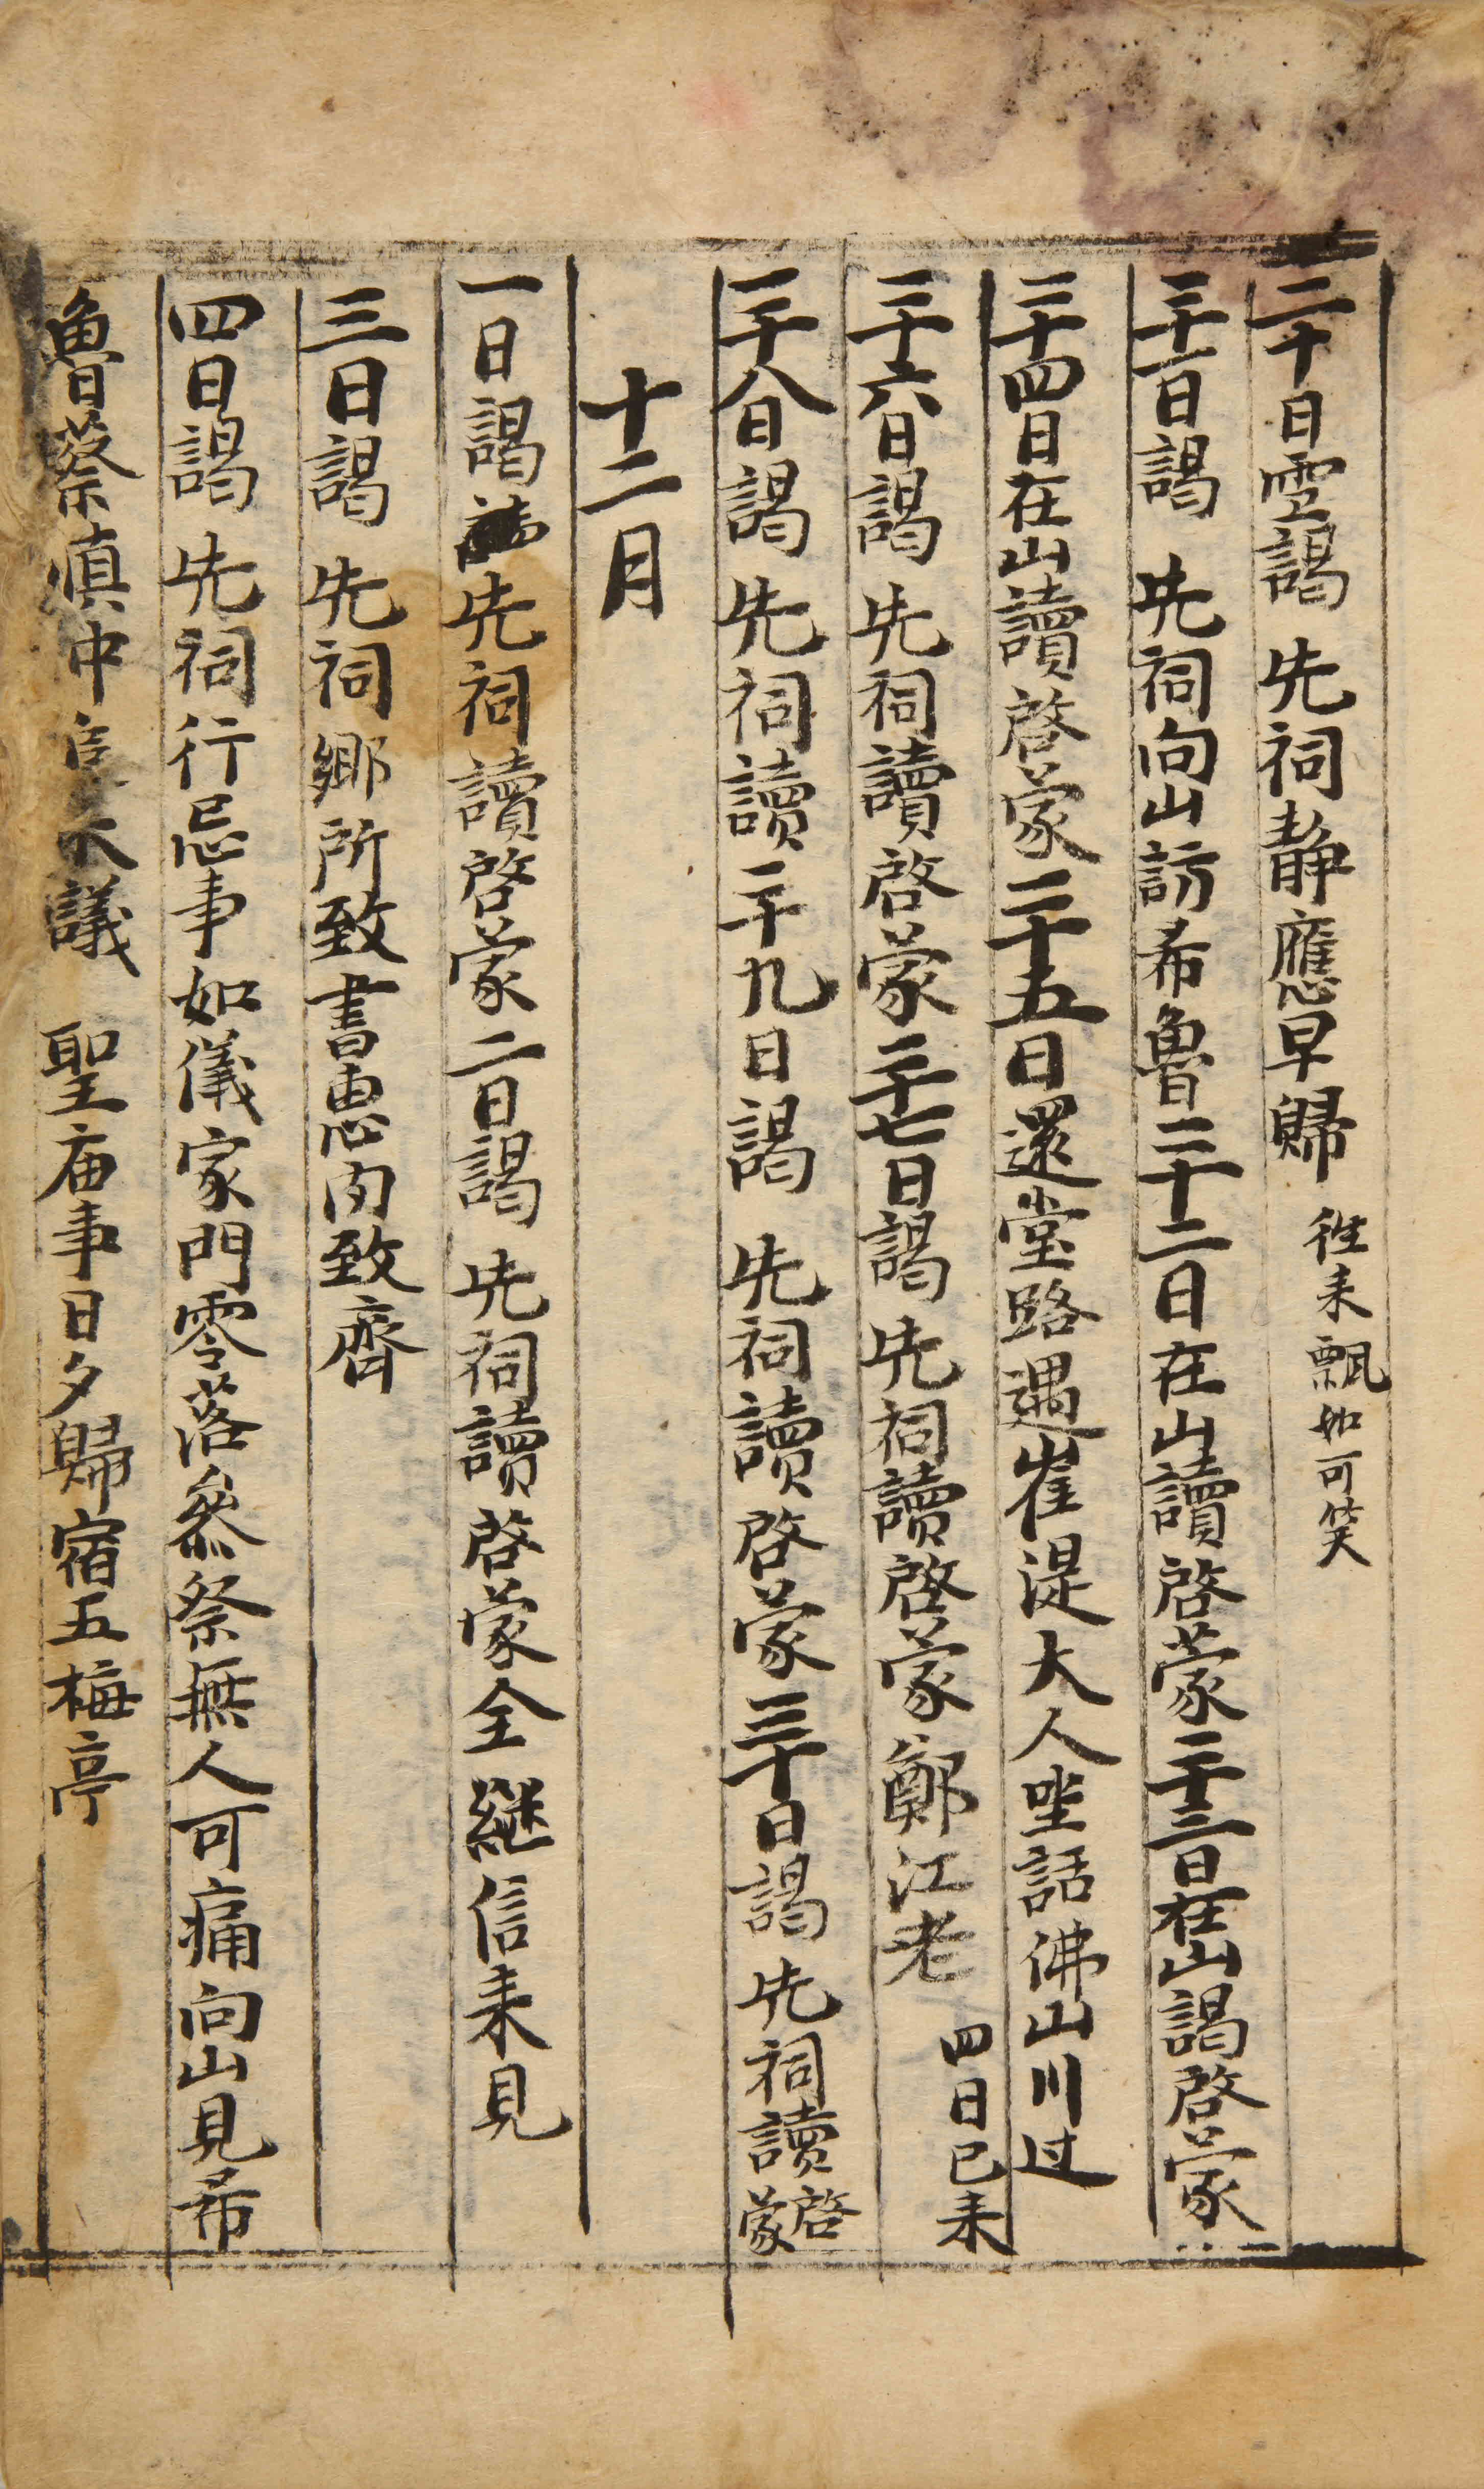 二十日雪謁 先祠静應早歸 往来飄如可笑
二十一日謁 先祠向山訪希魯二十二日在山讀啓蒙二十三日在山謁啓蒙
二十四日在山讀啓蒙二十五日還堂路遇崔湜大人坐話佛山川过
二十六日謁 先祠讀啓蒙二十七日謁 先祠讀啓蒙鄭江老 四日已来
二十八日謁 先祠讀二十九日謁 先祠讀啓蒙三十日謁 先祠讀啓蒙
十二月
一日謁 先祠讀啓蒙二日謁 先祠讀啓蒙全継信来見
三日謁 先祠鄉所致書惠肉致齊
四日謁 先祠行忌事如儀家門零落叅祭無人可痛向山見希
魯蔡慎中 議 聖庙事日夕歸宿五梅亭